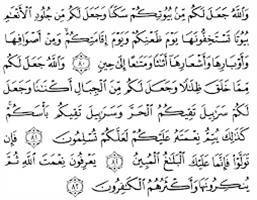 وَٱللَّهُ جَعَلَ لَكُم مِّنۢ بُيُوتِكُمْ سَكَنًا وَجَعَلَ لَكُم مِّن جُلُودِ ٱلْأَنْعَٰمِ
بُيُوتًا تَسْتَخِفُّونَهَا يَوْمَ ظَعْنِكُمْ وَيَوْمَ إِقَامَتِكُمْ ۙ وَمِنْ أَصْوَافِهَا
وَأَوْبَارِهَا وَأَشْعَارِهَآ أَثَٰثًا وَمَتَٰعًا إِلَىٰ حِينٍ ۝٨٠ وَٱللَّهُ جَعَلَ لَكُم
مِّمَّا خَلَقَ ظِلَٰلًا وَجَعَلَ لَكُم مِّنَ ٱلْجِبَالِ أَكْنَٰنًا وَجَعَلَ
لَكُمْ سَرَٰبِيلَ تَقِيكُمُ ٱلْحَرَّ وَسَرَٰبِيلَ تَقِيكُم بَأْسَكُمْ ۚ
كَذَٰلِكَ يُتِمُّ نِعْمَتَهُۥ عَلَيْكُمْ لَعَلَّكُمْ تُسْلِمُونَ ۝٨١ فَإِن
تَوَلَّوْا۟ فَإِنَّمَا عَلَيْكَ ٱلْبَلَٰغُ ٱلْمُبِينُ ۝٨٢ يَعْرِفُونَ نِعْمَتَ ٱللَّهِ ثُمَّ
يُنكِرُونَهَا وَأَكْثَرُهُمُ ٱلْكَٰفِرُونَ ۝٨٣